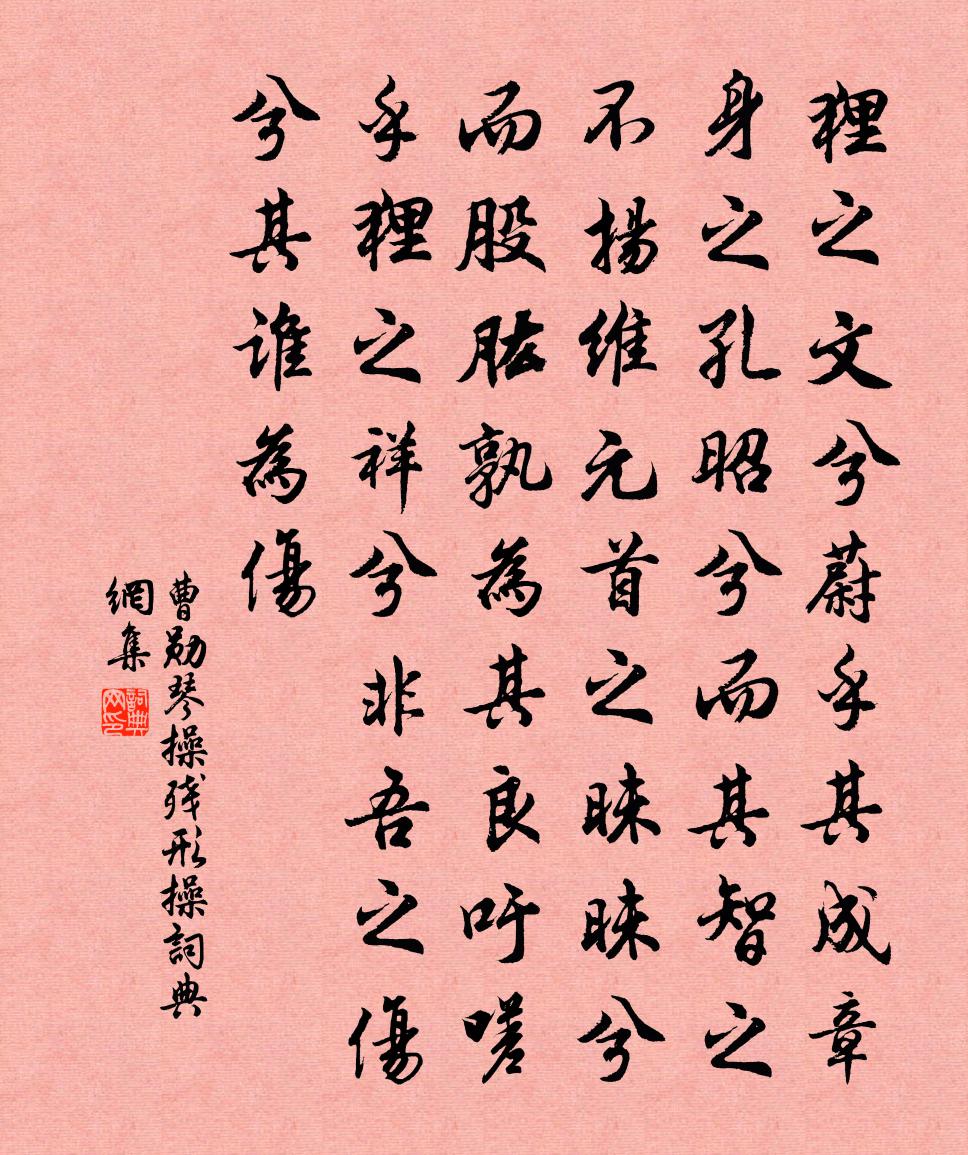 狸之文兮蔚乎其成章
身之孔昭兮而其智之
不揚維元首之昧昧兮
而股肱孰為其良吁嗟
乎狸之祥兮非吾之傷
兮其誰為傷
曹勛琴操残形操詞典
網集
詞典
网印